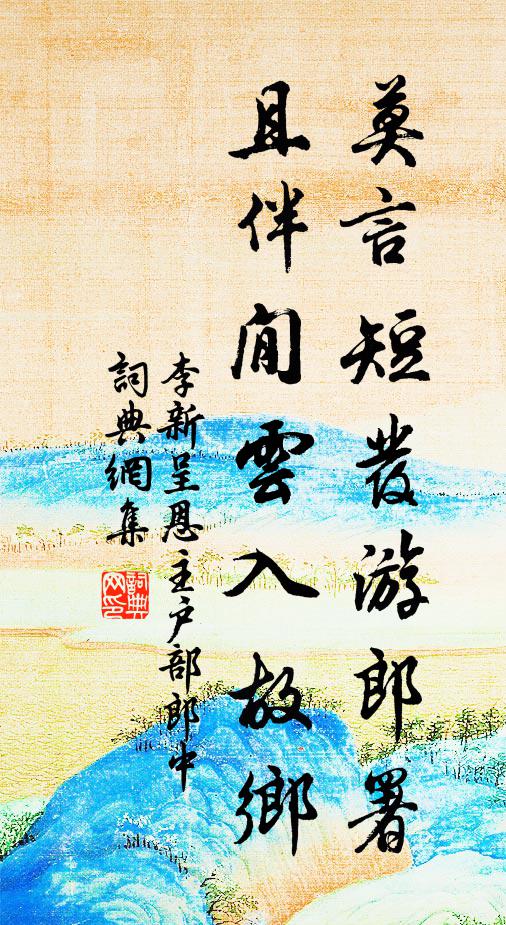 莫言短發游郎署
且伴閒雲入故鄉
李新呈恩主户部郎中
詞典網集
詞典网印